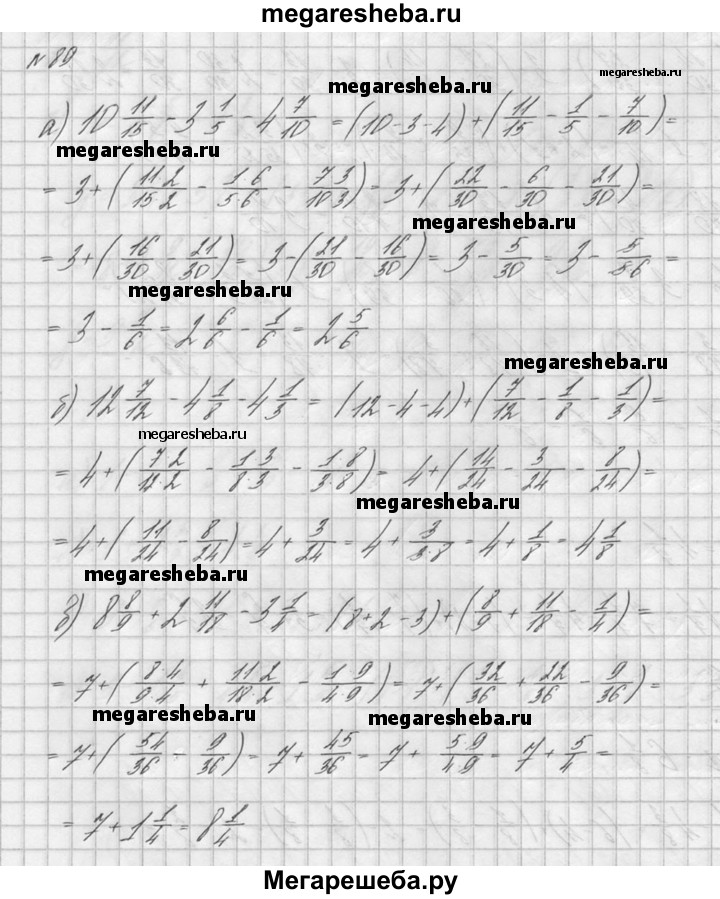 megaresheba.ru
№ 89
megaresheba.ru
megaresheba.ru
а) 10 11/15 - 3 1/5 - 4 7/10 = (10-3-4) + (11/15 - 1/5 - 7/10) =
megaresheba.ru
= 3 + (11·2/15·2 - 1·6/5·6 - 7·3/10·3) = 3 + (22/30 - 6/30 - 21/30) =
megaresheba.ru
= 3 + (16/30 - 21/30) = 3 - (21/30 - 16/30) = 3 - 5/30 = 3 - 5/5·6 =
megaresheba.ru
= 3 - 1/6 = 2 6/6 - 1/6 = 2 5/6
megaresheba.ru
б) 12 7/12 - 4 1/8 - 4 1/3 = (12-4-4) + (7/12 - 1/8 - 1/3) =
megaresheba.ru
= 4 + (7·2/12·2 - 1·3/8·3 - 1·8/3·8) = 4 + (14/24 - 3/24 - 8/24) =
megaresheba.ru
= 4 + (11/24 - 8/24) = 4 + 3/24 = 4 + 3/3·8 = 4 + 1/8 = 4 1/8
megaresheba.ru
в) 8 8/9 + 2 11/18 - 3 1/4 = (8+2-3) + (8/9 + 11/18 - 1/4) =
= 7 + (8·4/9·4 + 11·2/18·2 - 1·9/4·9) = 7 + (32/36 + 22/36 - 9/36) =
megaresheba.ru
megaresheba.ru
= 7 + (54/36 - 9/36) = 7 + 45/36 = 7 + 5·9/4·9 = 7 + 5/4 =
= 7 + 1 1/4 = 8 1/4
Мегарешеба.ру